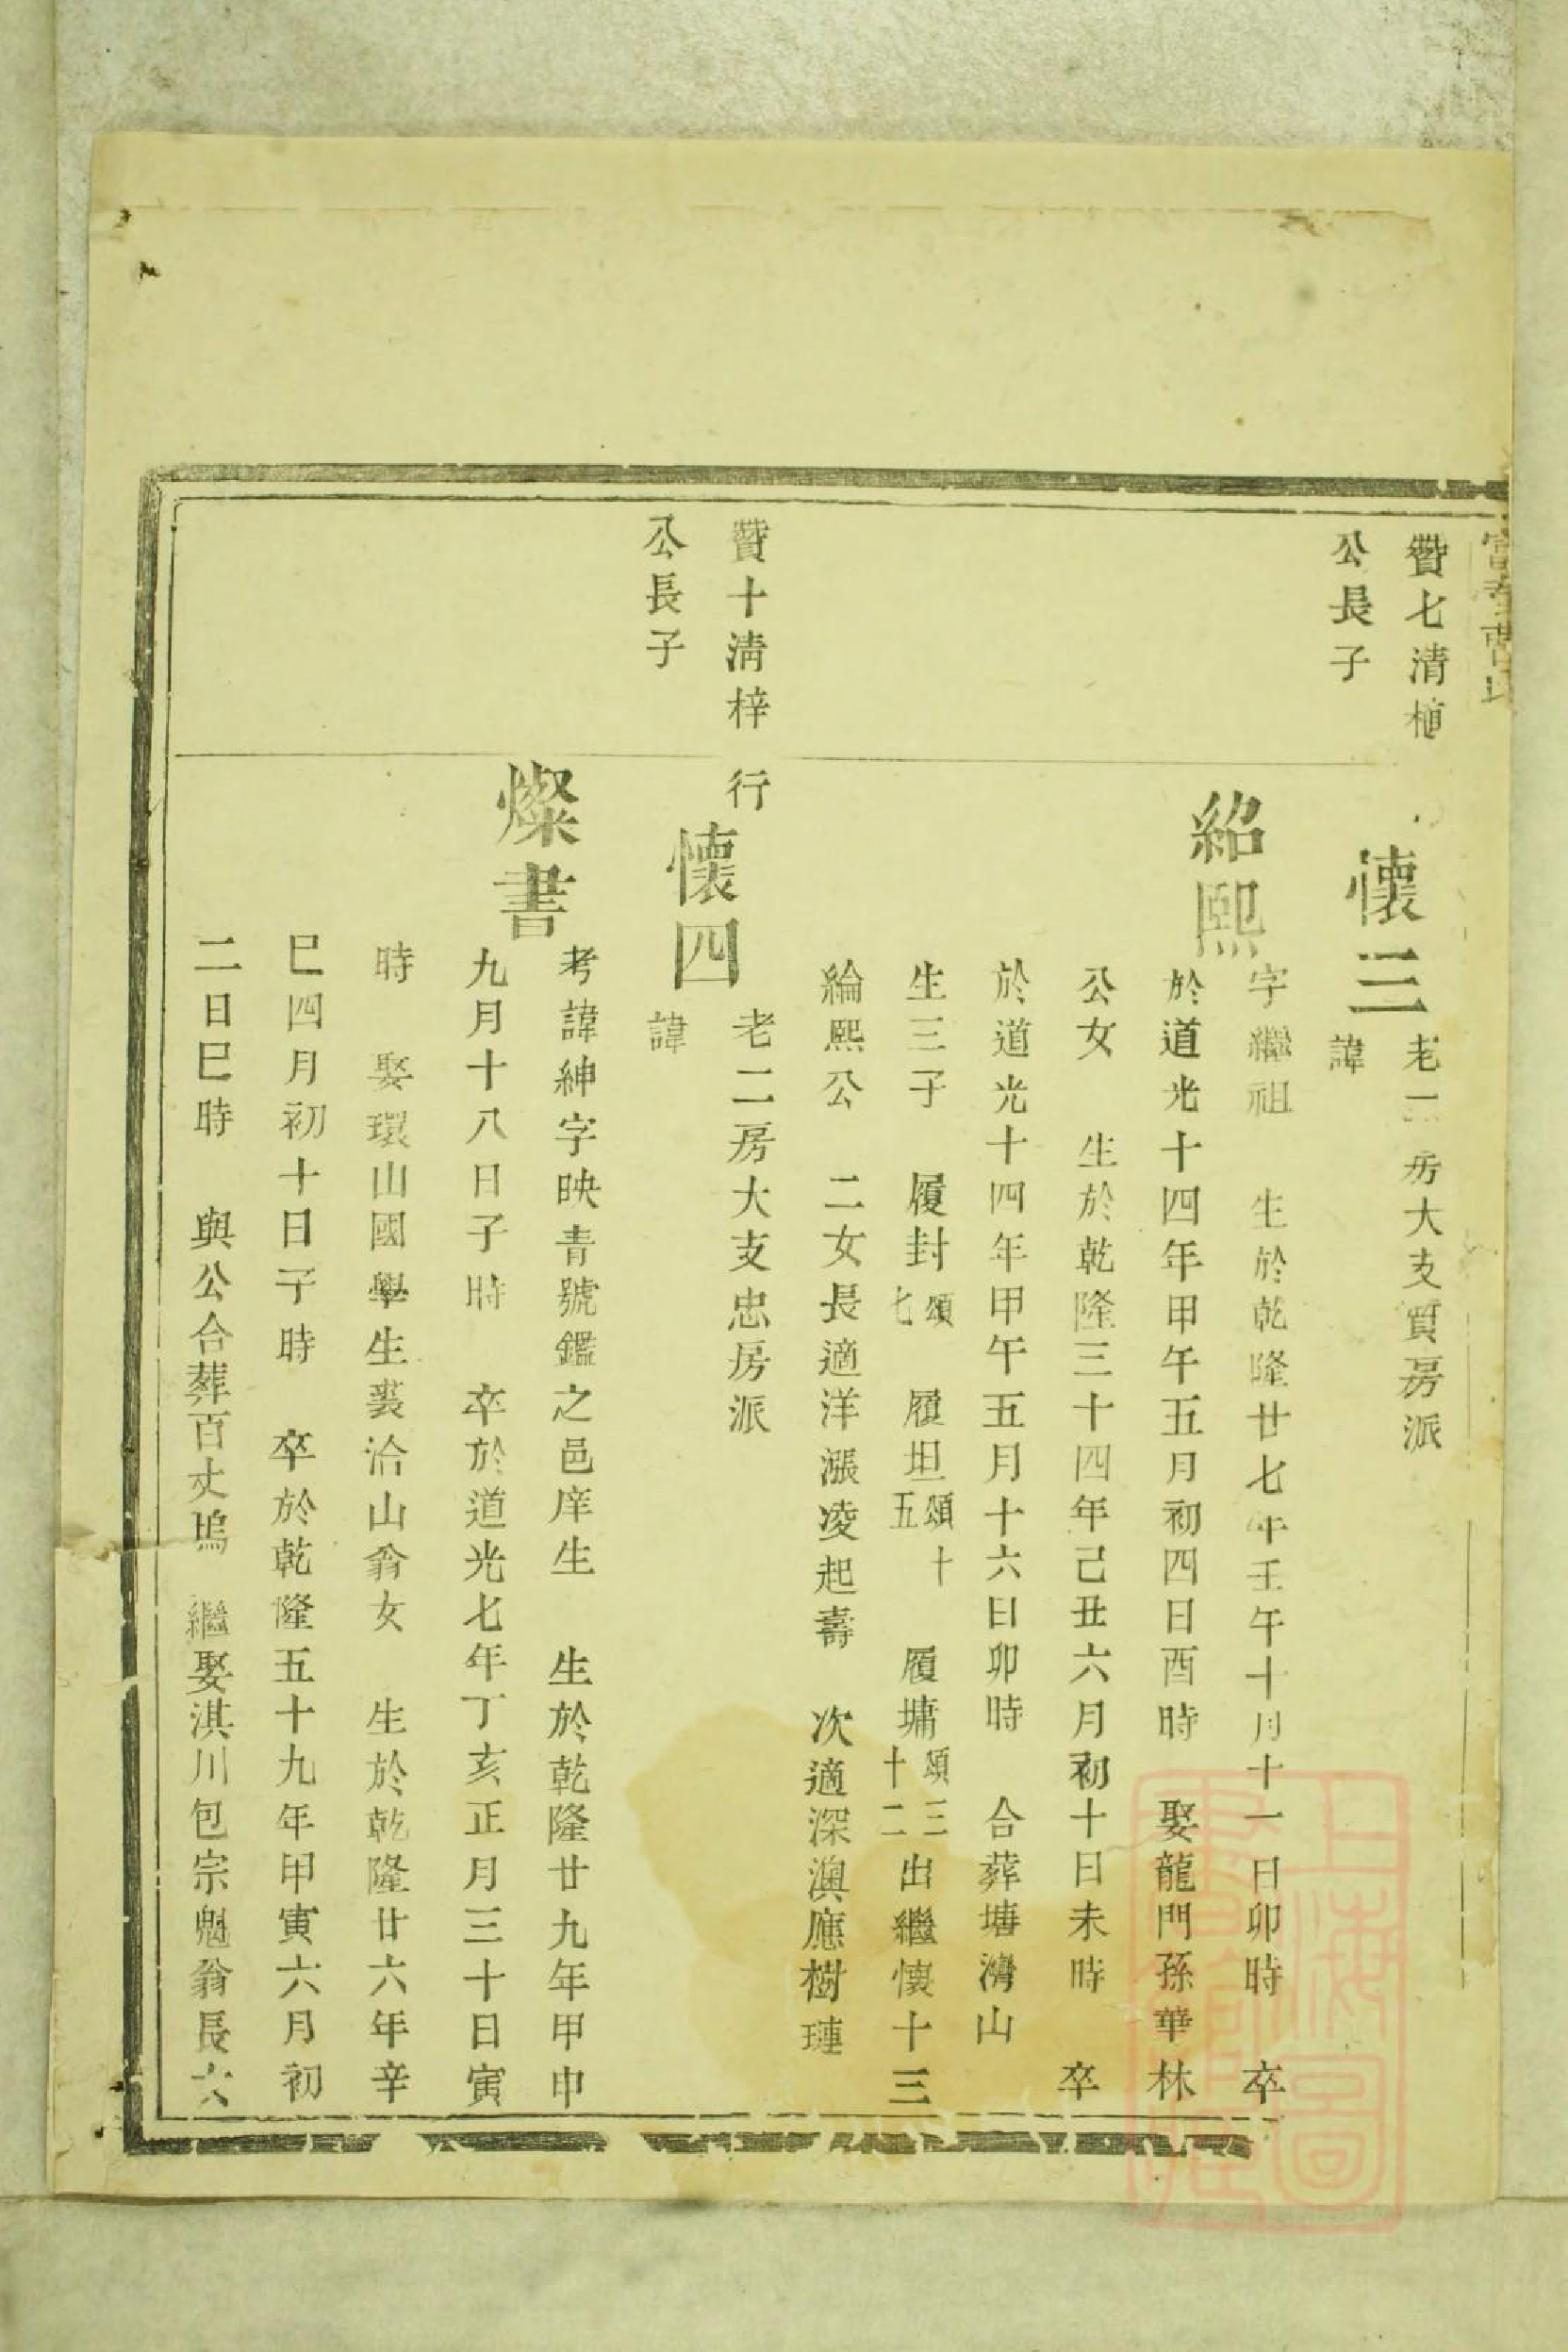 贊七清植
公長子
懷三
老二房大支質房派
諱
紹熙
字繼祖　生於乾隆廿七年壬午十月十一日卯時　卒
於道光十四年甲午五月初四日酉時　娶龍門孫華林
公女　生於乾隆三十四年己丑六月初十日未時　卒
於道光十四年甲午五月十六日卯時　合葬塘灣山
生三子　履封頌七　履坦頌十五　履墉頌三十二出繼懷十三
綸熙公　二女長適洋漲凌起壽　次適深澳應樹璉
贊十清梓
公長子
行
懷四
老二房大支忠房派
諱
燦書
考諱紳字映青號鑑之邑庠生　生於乾隆廿九年甲申
九月十八日子時　卒於道光七年丁亥正月三十日寅
時　娶環山國學生裘洽山翁女　生於乾隆廿六年辛
巳四月初十日子時　卒於乾隆五十九年甲寅六月初
二日巳時　與公合葬百丈塢　繼娶淇川包宗魁翁長女
上海圖書館藏